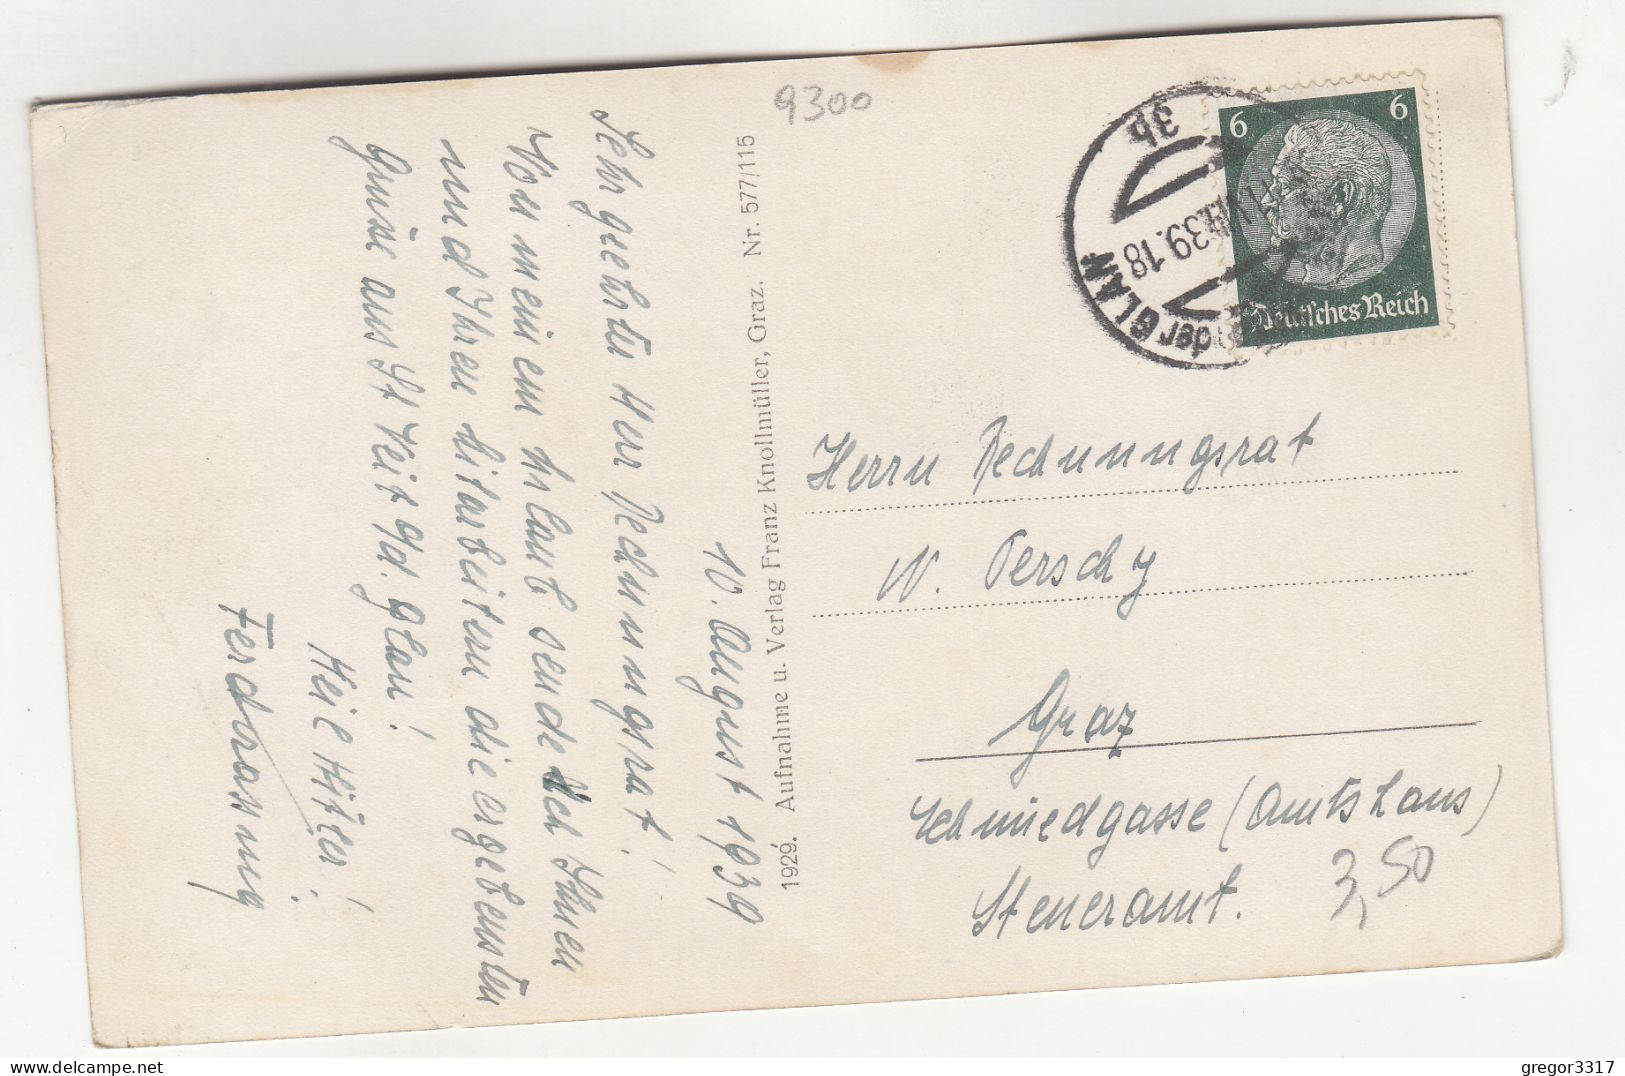 9300
3b
.39.18
an der GLAN
6 6
Deutsches Reich
10. August 1939
Sehr geehrter Herr Rechnungsrat!
Von meinem Urlaub sende ich Ihnen
und Ihren Mitarbeitern die ergebensten
Grüße aus St Veit a/d. Glan!
Heil Hitler!
1929. Aufnahme u. Verlag Franz Knollmüller, Graz. Nr. 577/115
Herrn Rechnungsrat
W. Perschy
Graz
Schmiedgasse (Amtshaus)
Steueramt.
3,50
gregor3317